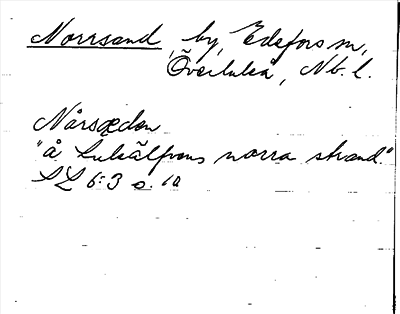 Norrsand, by, Edefors sn,
Överluleå, Nb. l.
Nårsæden
"å Luleälfvens norra strand."
SL 6:3 s. 10